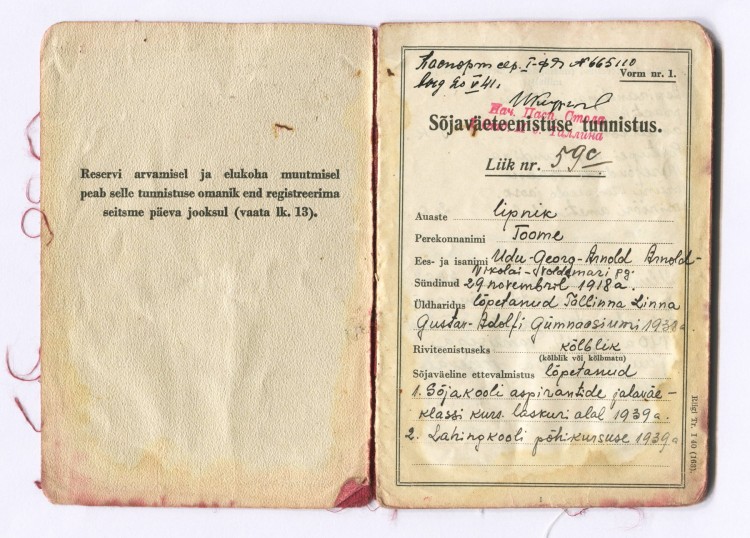 Reservi arvamisel ja elukoha muutmisel
peab selle tunnistuse omanik end registreerima
seitsme päeva jooksul (vaata lk. 13).
Паспорт сер. I-ФЯ N 665110
выд 20 V 41.
Vorm nr. 1.
Нач. Пасп. Стола
г. Таллина
Sõjaväeteenistuse tunnistus.
Liik nr. 59c
Auaste lipnik
Perekonnanimi Toome
Ees- ja isanimi Udu-Georg-Arnold Arnold-
Nikolai-Voldemari pg.
Sündinud 29 novembril 1918 a.
Üldharidus lõpetanud Tallinna Linna
Gustav-Adolfi Gümnaasiumi
Riviteenistuseks kõlblik
(kõlblik või kõlbmatu)
Sõjaväeline ettevalmistus lõpetanud
1. Sõjakooli aspirantide jalaväe-
klassi kurs. laskuri alal 1939 a.
2. Lahingkooli põhikursuse 1939 a
Riigi Tr. T 40 (168).